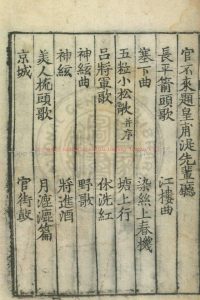 官不來題皇甫湜先輩㕔
長平箭頭歌　江樓曲
塞下曲　染絲上春機
五粒小松歌并序　塘上行
呂將軍歌　休洗紅
神絃曲　野歌
神絃　將進酒
美人梳頭歌　月漉漉篇
京城　官街鼓